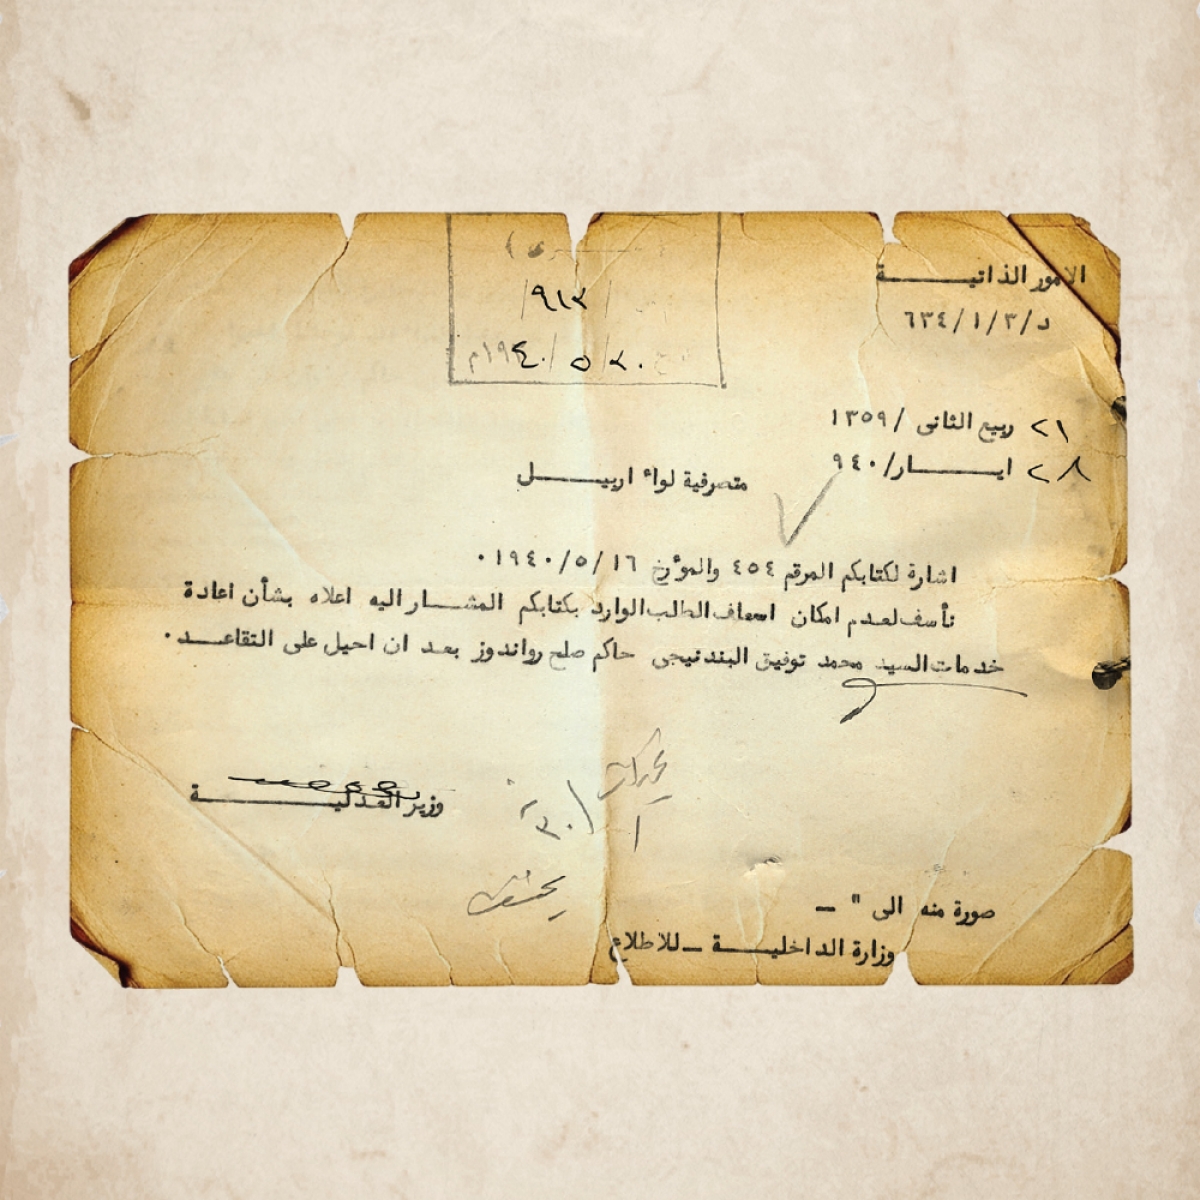 الامور الذاتيـــــة
د/٣/١/٦٣٤
/٩١٣/
٣٠/٥/١٩٤٠م
٢١ ربيع الثانى /١٣٥٩
٢٨ ايـــــار/٩٤٠
متصرفية لواء اربيـــل
اشارة لكتابكم المرقم ٤٥٤ والمؤرخ ١٦/٥/١٩٤٠.
نأسف لعدم امكان اسعاف الطلب الوارد بكتابكم المشـــار اليه اعلاه بشأن اعادة
خدمات السيد محمد توفيق البندنيجى حاكم صلح رواندوز بعد ان احيل على التقاعـــد.
وزير العدليـــــة
٣٠/
يحفظ
صورة منه الى " ــ
وزارة الداخليـــة ــ للاطلاع